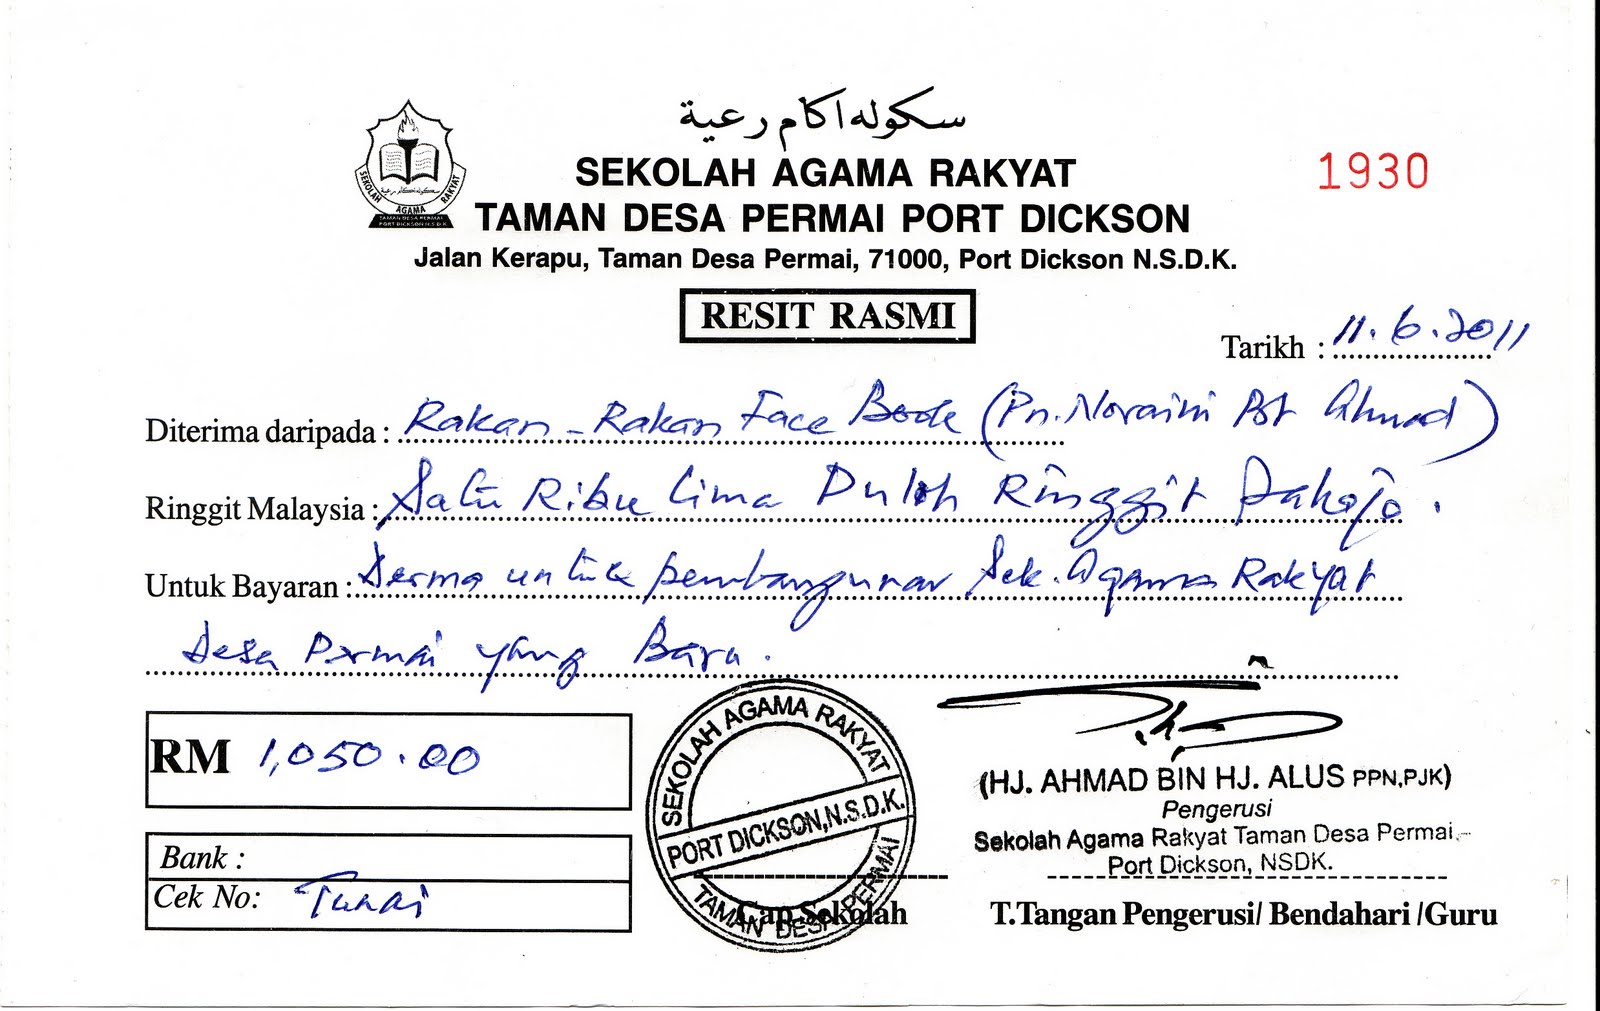 سكوله اݢام رعية
SEKOLAH AGAMA RAKYAT
TAMAN DESA PERMAI PORT DICKSON
Jalan Kerapu, Taman Desa Permai, 71000, Port Dickson N.S.D.K.
1930
SEKOLAH AGAMA RAKYAT
TAMAN DESA PERMAI
PORT DICKSON N.S.D.K
RESIT RASMI
Tarikh : 11.6.2011
Diterima daripada : Rakan-Rakan Face Book (Pn. Noraini Bt Ahmad)
Ringgit Malaysia : Satu Ribu Lima Puloh Ringgit Sahaja.
Untuk Bayaran : Derma untuk pembangunan Sek. Agama Rakyat
Desa Permai yang Baru.
RM 1,050.00
Bank :
Cek No: Tunai
SEKOLAH AGAMA RAKYAT
PORT DICKSON,N.S.D.K.
TAMAN DESA PERMAI
Cap Sekolah
(HJ. AHMAD BIN HJ. ALUS PPN,PJK)
Pengerusi
Sekolah Agama Rakyat Taman Desa Permai
Port Dickson, NSDK.
T.Tangan Pengerusi/ Bendahari /Guru